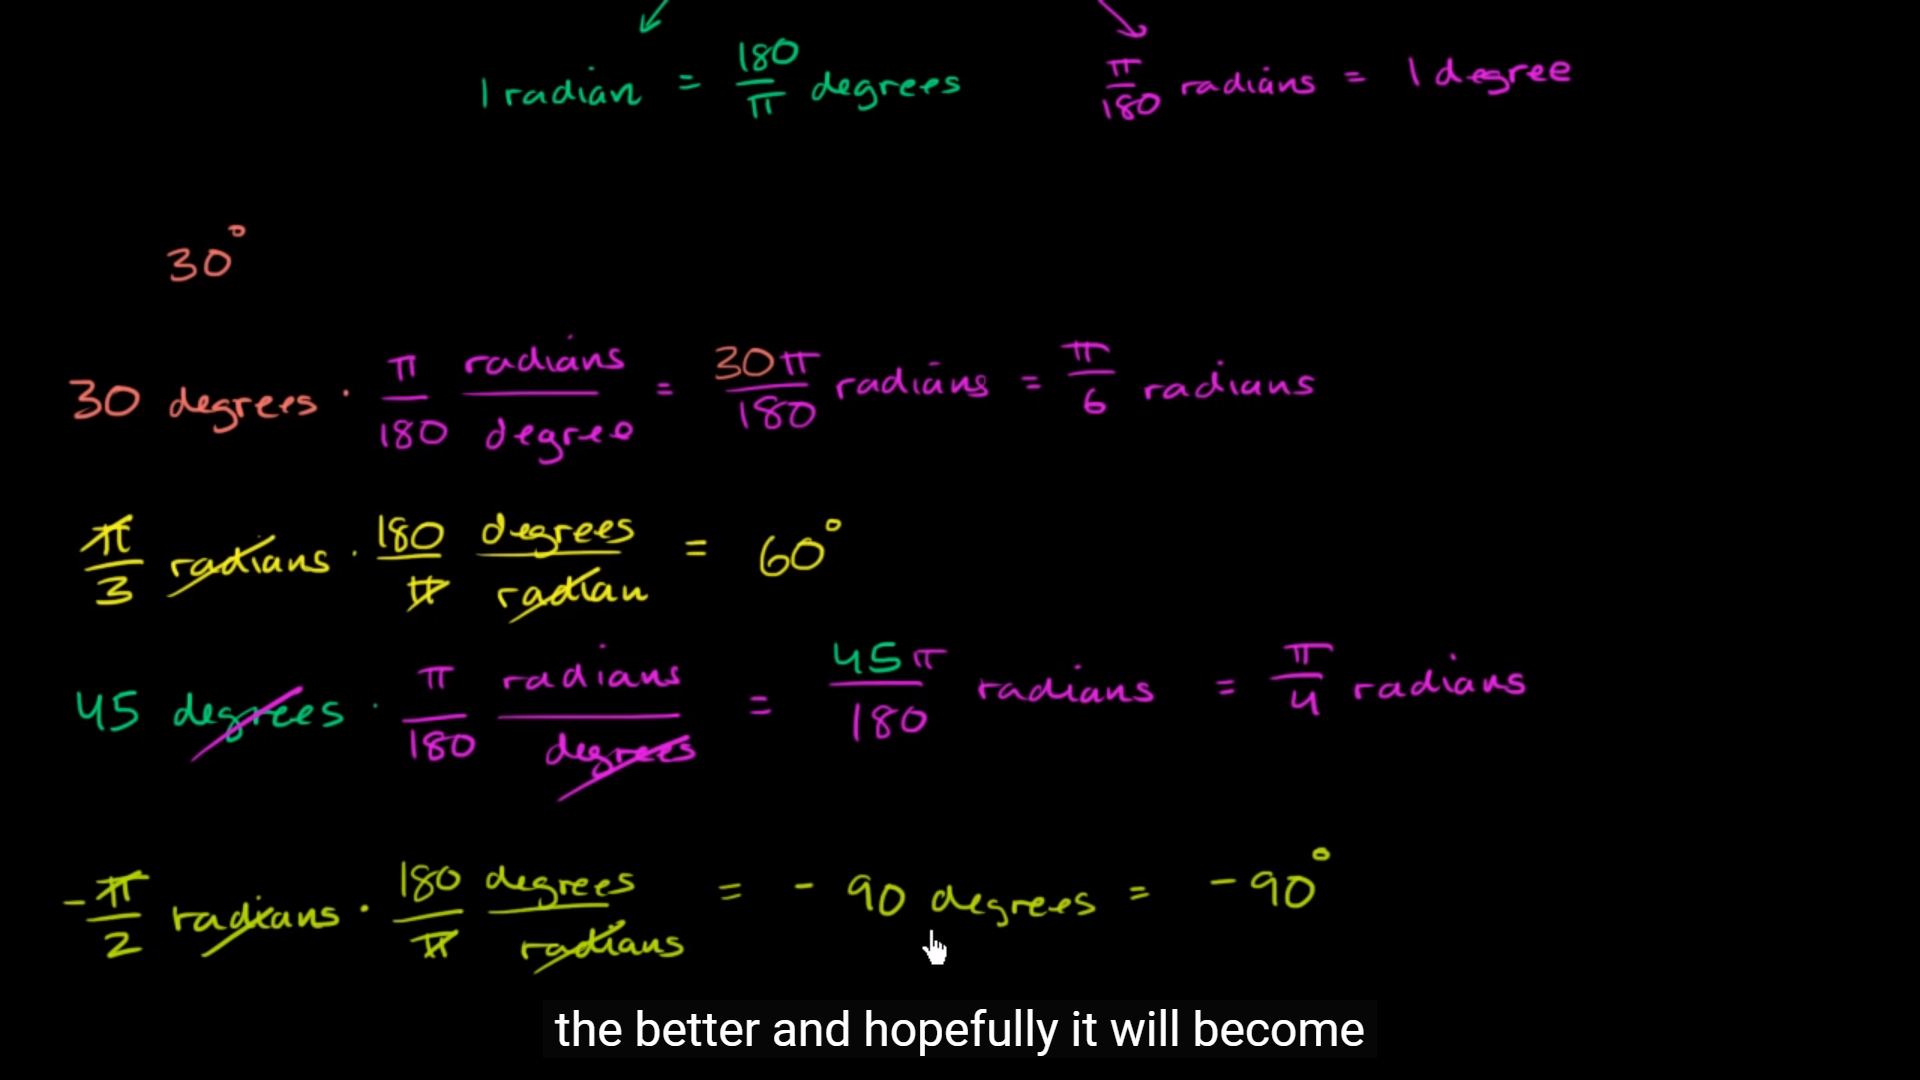 1 radian = 180/π degrees
π/180 radians = 1 degree
30°
30 degrees · π/180 radians/degree = 30π/180 radians = π/6 radians
π/3 radians · 180/π degrees/radian = 60°
45 degrees · π/180 radians/degrees = 45π/180 radians = π/4 radians
-π/2 radians · 180/π degrees/radians = - 90 degrees = -90°
the better and hopefully it will become